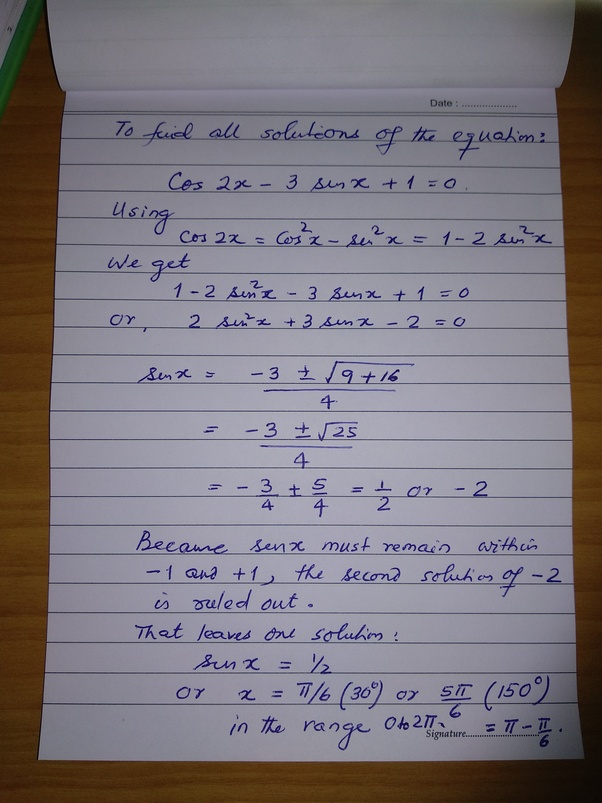 Date : ...................
To find all solutions of the equation:
Cos 2x - 3 sin x + 1 = 0.
Using
cos 2x = Cos²x - sin²x = 1 - 2 sin²x
We get
1 - 2 sin²x - 3 sin x + 1 = 0
or, 2 sin²x + 3 sin x - 2 = 0
sin x = (-3 ± √(9 + 16)) / 4
= (-3 ± √25) / 4
= - 3/4 ± 5/4 = 1/2 or - 2
Because sin x must remain within
-1 and +1, the second solution of -2
is ruled out.
That leaves one solution:
sin x = 1/2
or x = π/6 (30°) or 5π/6 (150°)
in the range 0 to 2π. = π - π/6.
Signature..............................